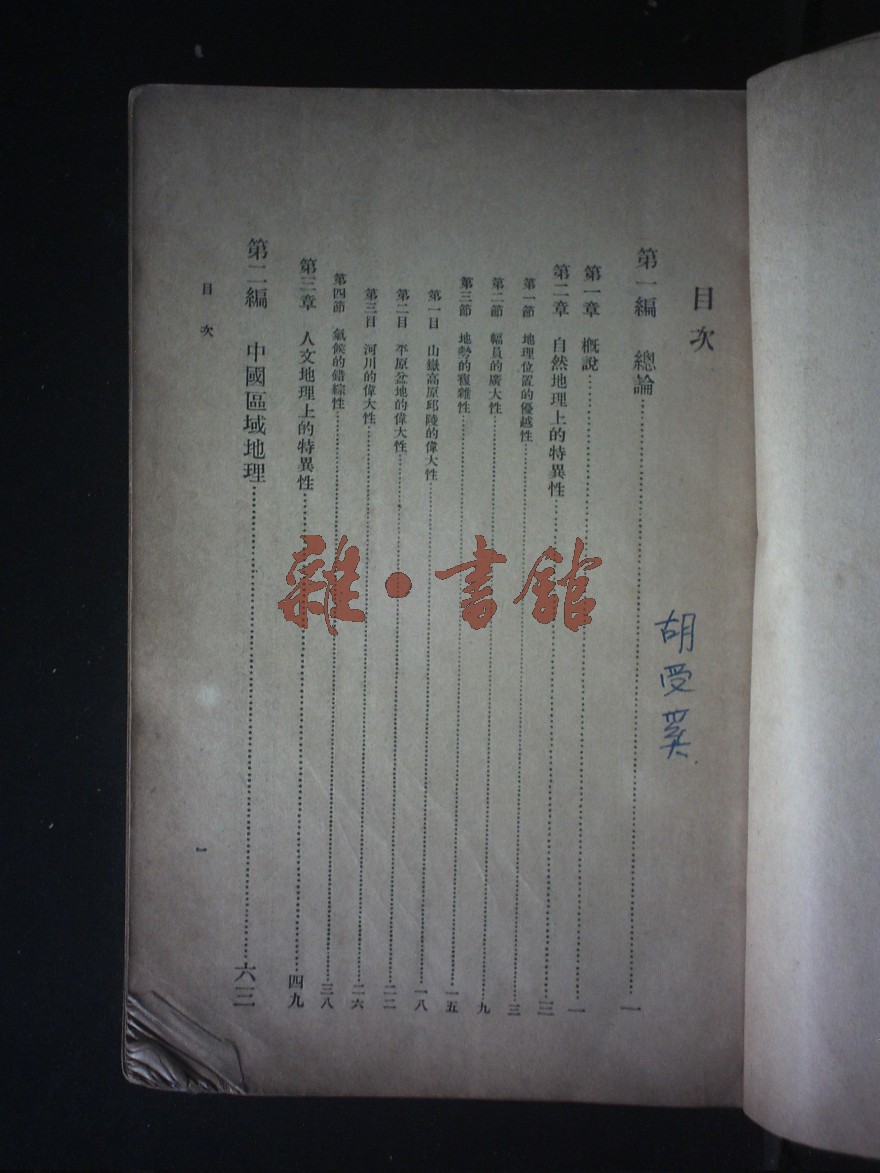 目次
第一編 總論……一
第一章 概說……一
第二章 自然地理上的特異性……三
第一節 地理位置的優越性……三
第二節 幅員的廣大性……九
第三節 地勢的複雜性……一五
第一目 山嶽高原邱陵的偉大性……一八
第二目 平原盆地的偉大性……二二
第三目 河川的偉大性……二六
第四節 氣候的錯綜性……三八
第三章 人文地理上的特異性……四九
第二編 中國區域地理……六三
目次
一
胡受
雜·書館